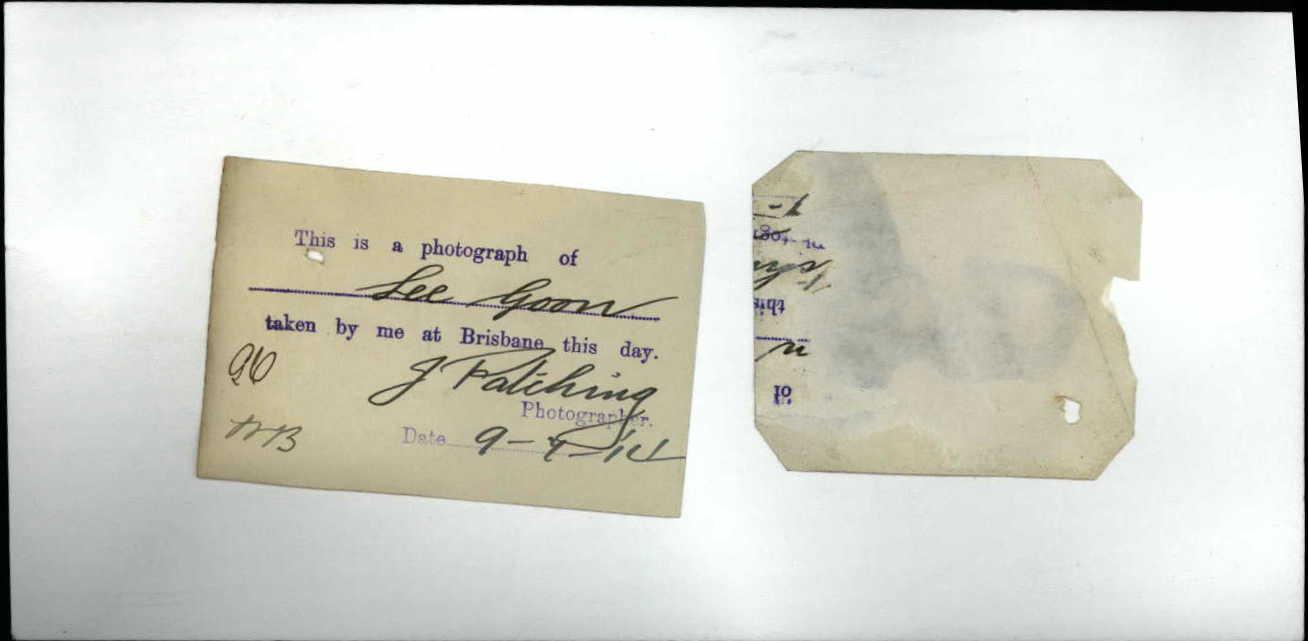 This is a photograph of
Lee Goon
taken by me at Brisbane this day.
J Patching
Photographer.
Date 9-9-14